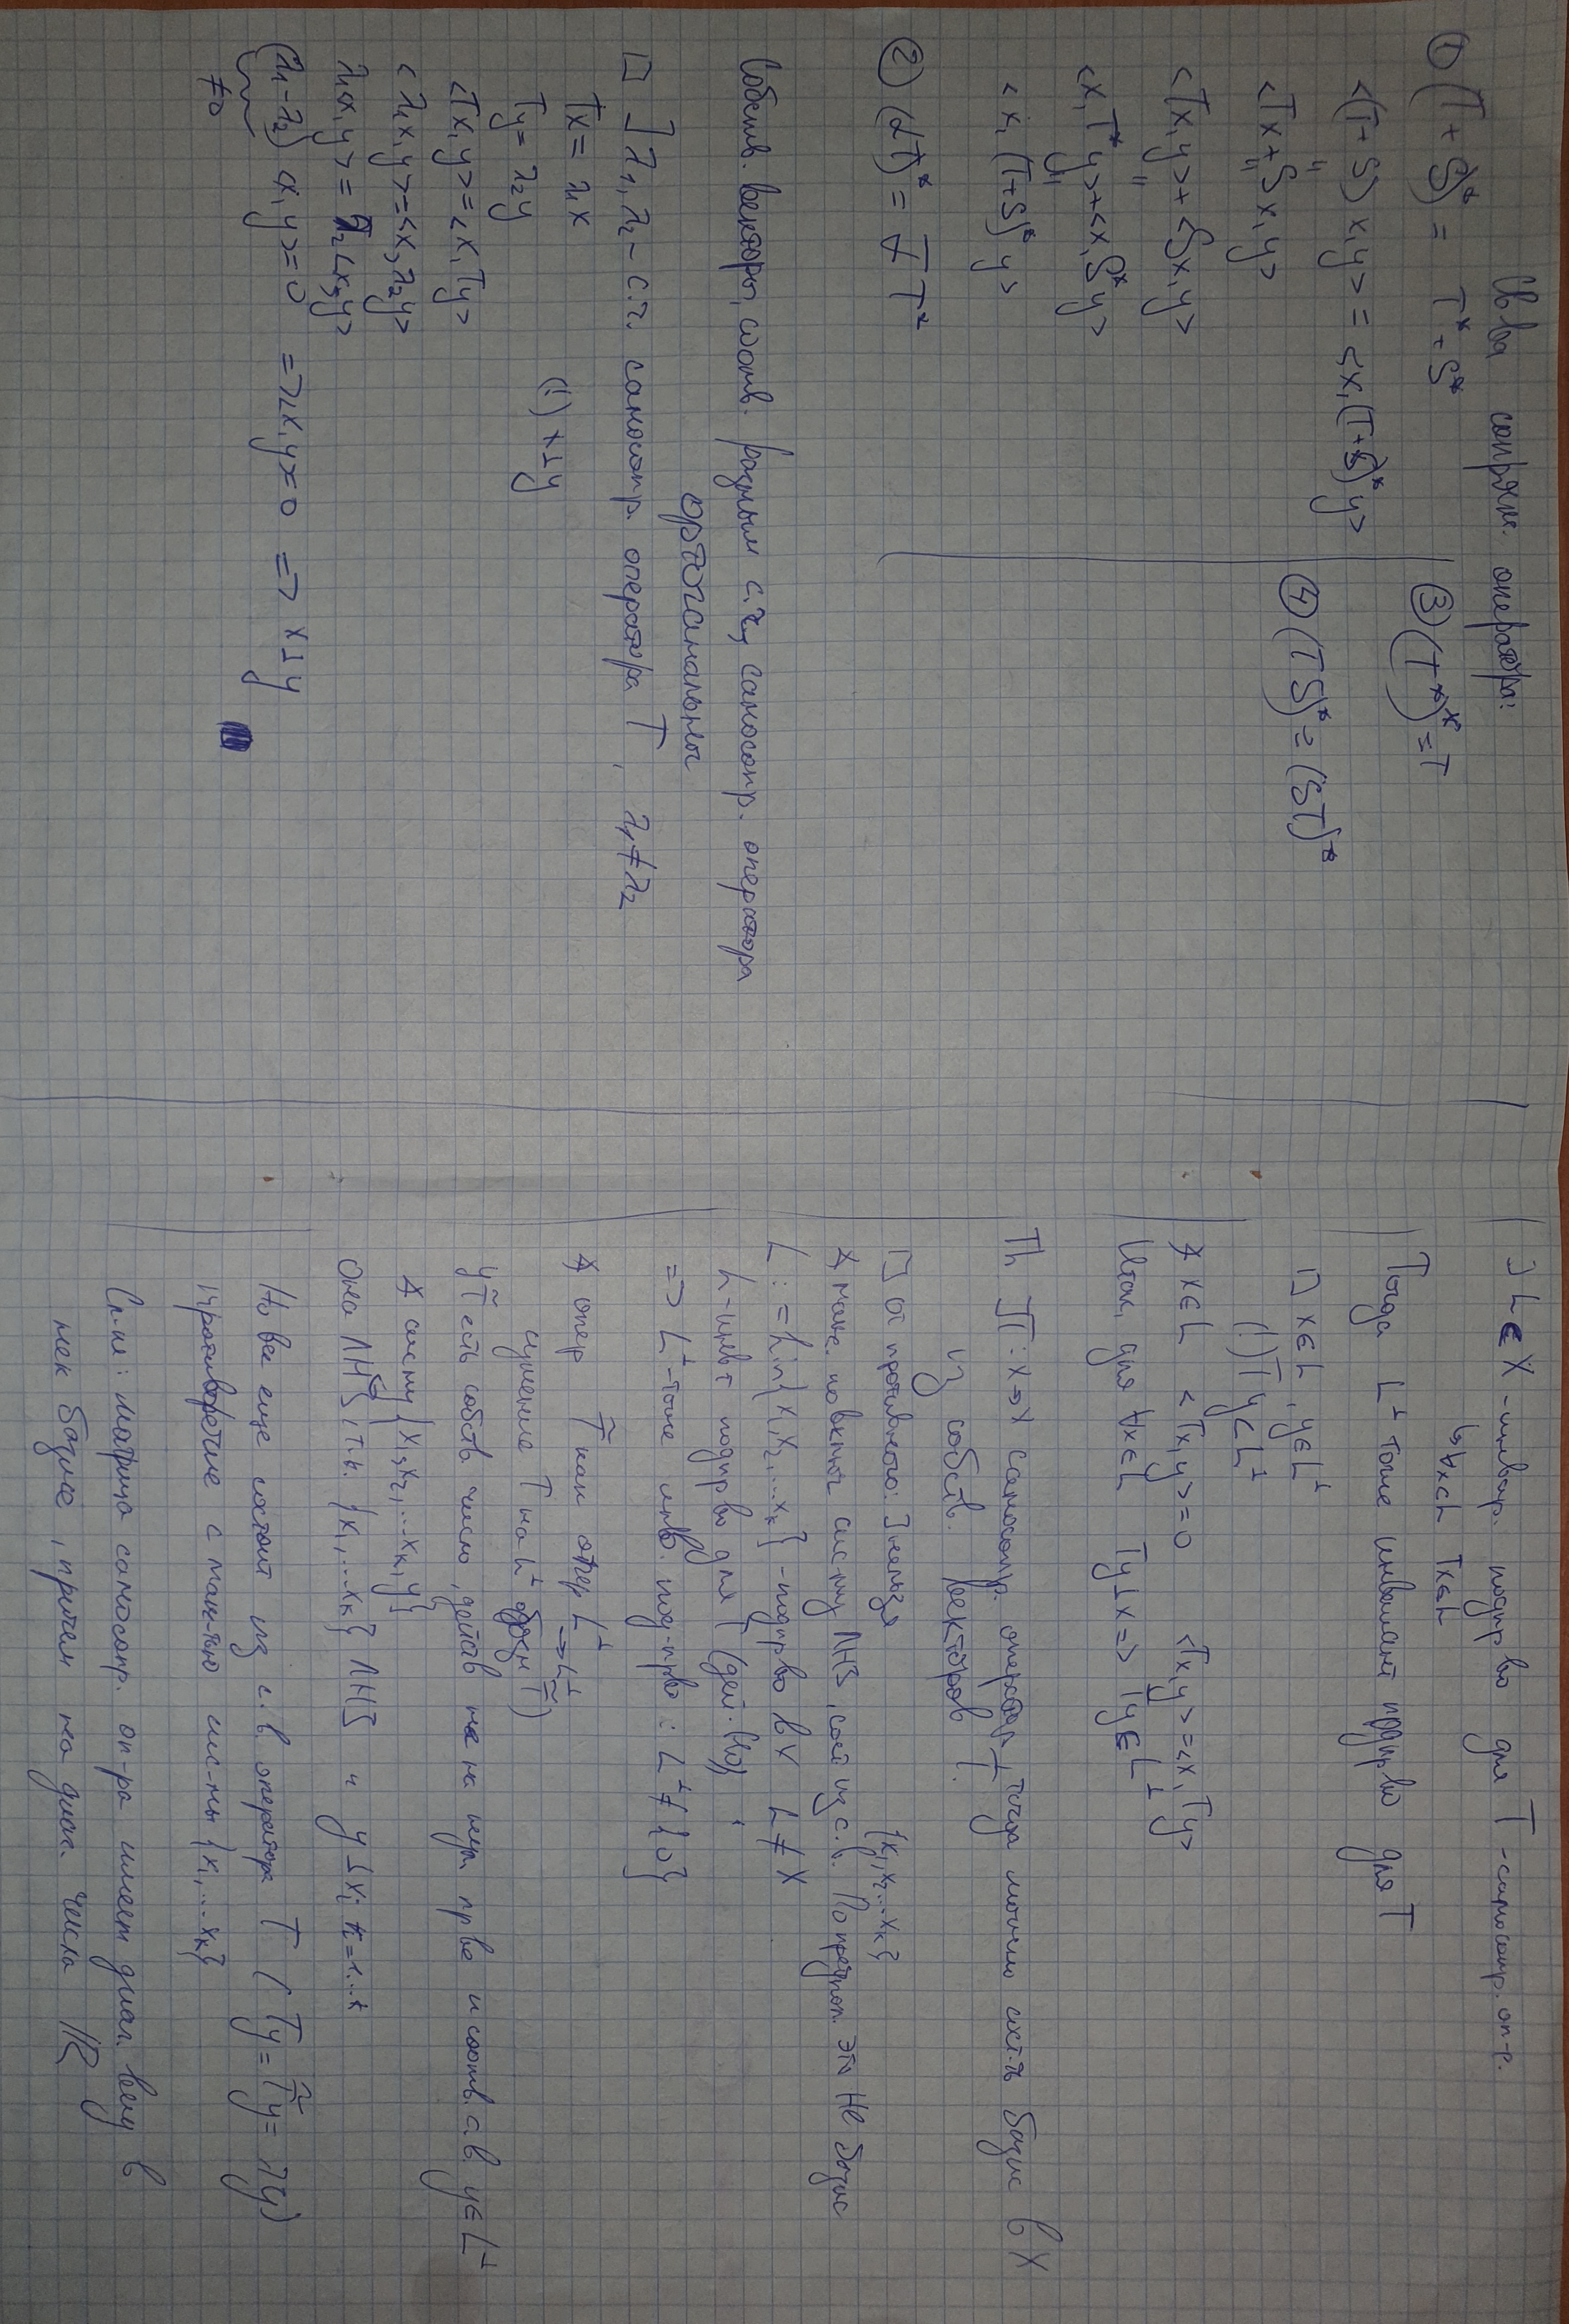 Св-ва сопряж. оператора:
① (T + S)* = T* + S*
<(T+S)x,y> = <x,(T+S)*y>
"
<Tx+Sx,y>
"
<Tx,y>+<Sx,y>
"
<x,T*y>+<x,S*y>
"
<x,(T+S)*y>
② (αT)* = α̅ T*
③ (T*)* = T
④ (TS)* = (ST)*
Собств. векторы, соотв. разным с.ч., самосопр. оператора
ортогональны
□ ] λ₁, λ₂ - с.ч. самосопр. оператора T, λ₁≠λ₂
Tx = λ₁x
(!) x⊥y
Ty = λ₂y
<Tx,y>=<x,Ty>
<λ₁x,y>=<x,λ₂y>
λ₁<x,y>= λ₂<x,y>
(λ₁-λ₂)<x,y>=0 => <x,y>=0 => x⊥y
≠0
] L ∈ X -инвар. подпр-во для T -самосопр. оп-р.
↳∀x∈L Tx∈L
Тогда L⊥ тоже инвариант подпр-во для T
□ x∈L, y∈L⊥
(!) Ty∈L⊥
∢ x∈L <Tx,y>=0 <Tx,y>=<x,Ty>
Итак, для ∀x∈L Ty⊥x => Ty∈L⊥
Th ] T: X→X самосопр. оператор, тогда можно сост-ть базис в X
из собств. векторов T.
□ От противного: ] нельзя {x₁,x₂...xₖ}
∢ макс. по включ сис-му ЛНЗ, сост из с.в. По предпол. это не базис
L := Lin{x₁,x₂,...xₖ} -подпр-во в X L≠X
L-инвт подпр-во для T
=> L⊥-тоже инв. под-пр-во : L⊥≠{0}
∢ опер T̃ как опер L⊥→L⊥
сужение T на L⊥
у T̃ есть собств. число, действ на пр-ве и соотв. с.в. y∈L⊥
∢ сис-му {x₁,x₂,...xₖ,y}
Она ЛНЗ, т.к. {x₁,...xₖ} ЛНЗ и y⊥xᵢ
Но все еще состоит из с.в. оператора T (Ty=T̃y=λy)
Противоречие с макс-тью сис-мы {x₁,...xₖ}
Сл-ие: матрица самосопр. оп-ра имеет диаг. вид в
нек базисе, причем на диаг. числа ℝ